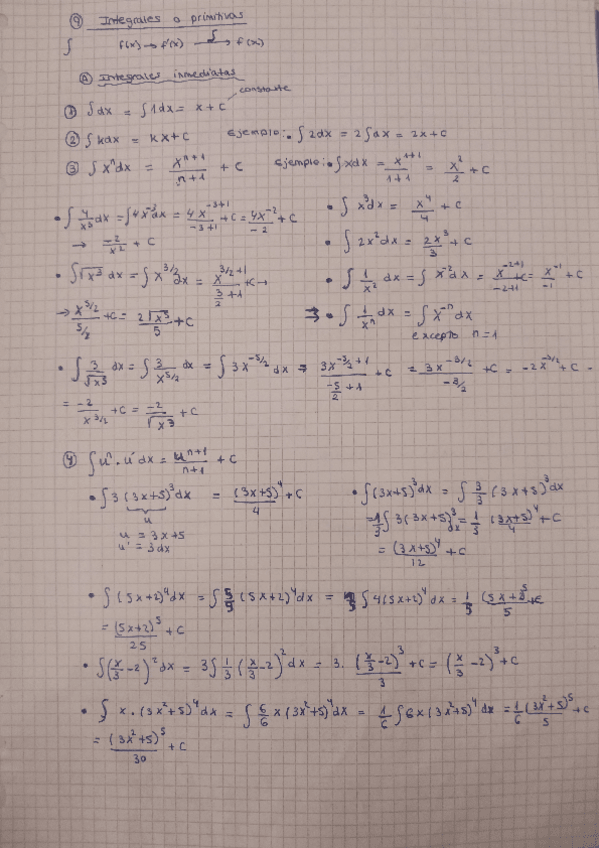 ⑨ Integrales o primitivas
∫ f(x) → f'(x) —∫→ f(x)
Ⓐ Integrales inmediatas
① ∫dx = ∫1dx = x + C constante
② ∫kdx = kx + C Ejemplo: • ∫2dx = 2∫dx = 2x + C
③ ∫xⁿdx = xⁿ⁺¹/n+1 + C Ejemplo: • ∫xdx = x¹⁺¹/1+1 = x²/2 + C
• ∫4/x³ dx = ∫4x⁻³dx = 4x⁻³⁺¹/-3+1 + C = 4x⁻²/-2 + C
→ -2/x² + C
• ∫x³dx = x⁴/4 + C
• ∫2x²dx = 2x³/3 + C
• ∫√x³ dx = ∫x^3/2 dx = x^3/2+1/(3/2+1) + C →
→ x^5/2/(5/2) + C = 2√x⁵/5 + C
• ∫1/x² dx = ∫x⁻²dx = x⁻²⁺¹/-2+1 + C = x⁻¹/-1 + C
• ∫1/xⁿ dx = ∫x⁻ⁿdx
excepto n = 1
• ∫3/√x⁵ dx = ∫3/x^5/2 dx = ∫3x^-5/2 dx = 3x^-5/2+1/(-5/2+1) + C = 3x^-3/2/(-3/2) + C = -2x^-3/2 + C =
= -2/x^3/2 + C = -2/√x³ + C
④ ∫uⁿ · u' dx = uⁿ⁺¹/n+1 + C
• ∫3(3x+5)³dx = (3x+5)⁴/4 + C
u
u = 3x+5
u' = 3dx
• ∫(3x+5)³dx = ∫3/3 (3x+5)³dx
= 1/3 ∫3(3x+5)³dx = 1/3 (3x+5)⁴/4 + C
= (3x+5)⁴/12 + C
• ∫(5x+2)⁴dx = ∫5/5 (5x+2)⁴dx = 1/5 ∫4(5x+2)⁴dx = 1/5 (5x+2)⁵/5 + C
= (5x+2)⁵/25 + C
• ∫(x/3 - 2)²dx = 3∫1/3 (x/3 - 2)²dx = 3 · (x/3 - 2)³/3 + C = (x/3 - 2)³ + C
• ∫x · (3x²+5)⁴dx = ∫6/6 x(3x²+5)⁴dx = 1/6 ∫6x(3x²+5)⁴dx = 1/6 (3x²+5)⁵/5 + C
= (3x²+5)⁵/30 + C